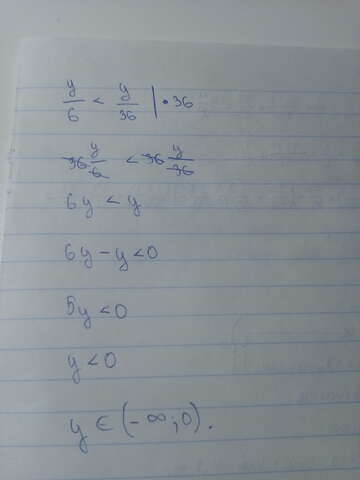 y/6 < y/36 | • 36
36 y/6 < 36 y/36
6y < y
6y - y < 0
5y < 0
y < 0
y ∈ (-∞; 0).